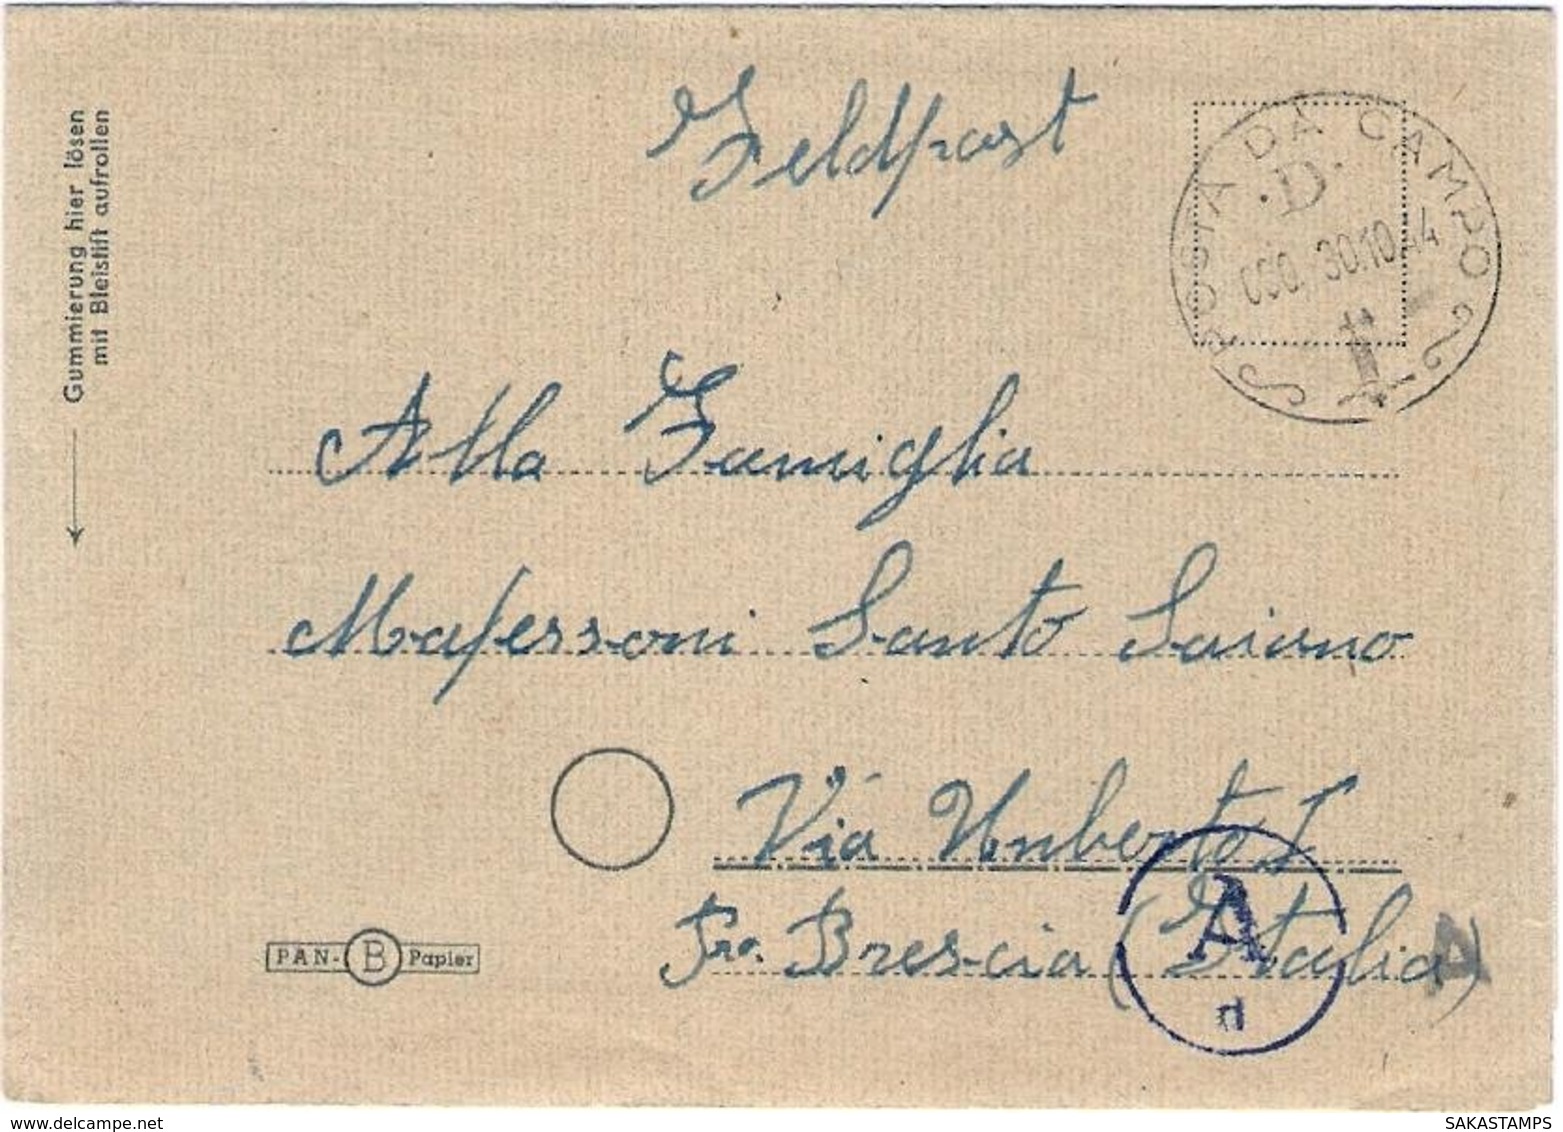 Gummierung hier lösen
mit Bleistift aufrollen
Feldpost
POSTA DA CAMPO
·D·
30.10.44
Alla Famiglia
Mafessoni Santo Saiano
Via Umberto I
Pro. Brescia (Italia)
A
d
A
PAN-B Papier
SAKASTAMPS